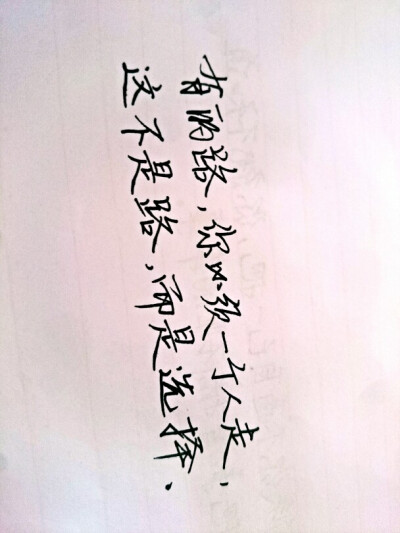 有的路，你必须一个人走，
这不是路，而是选择.